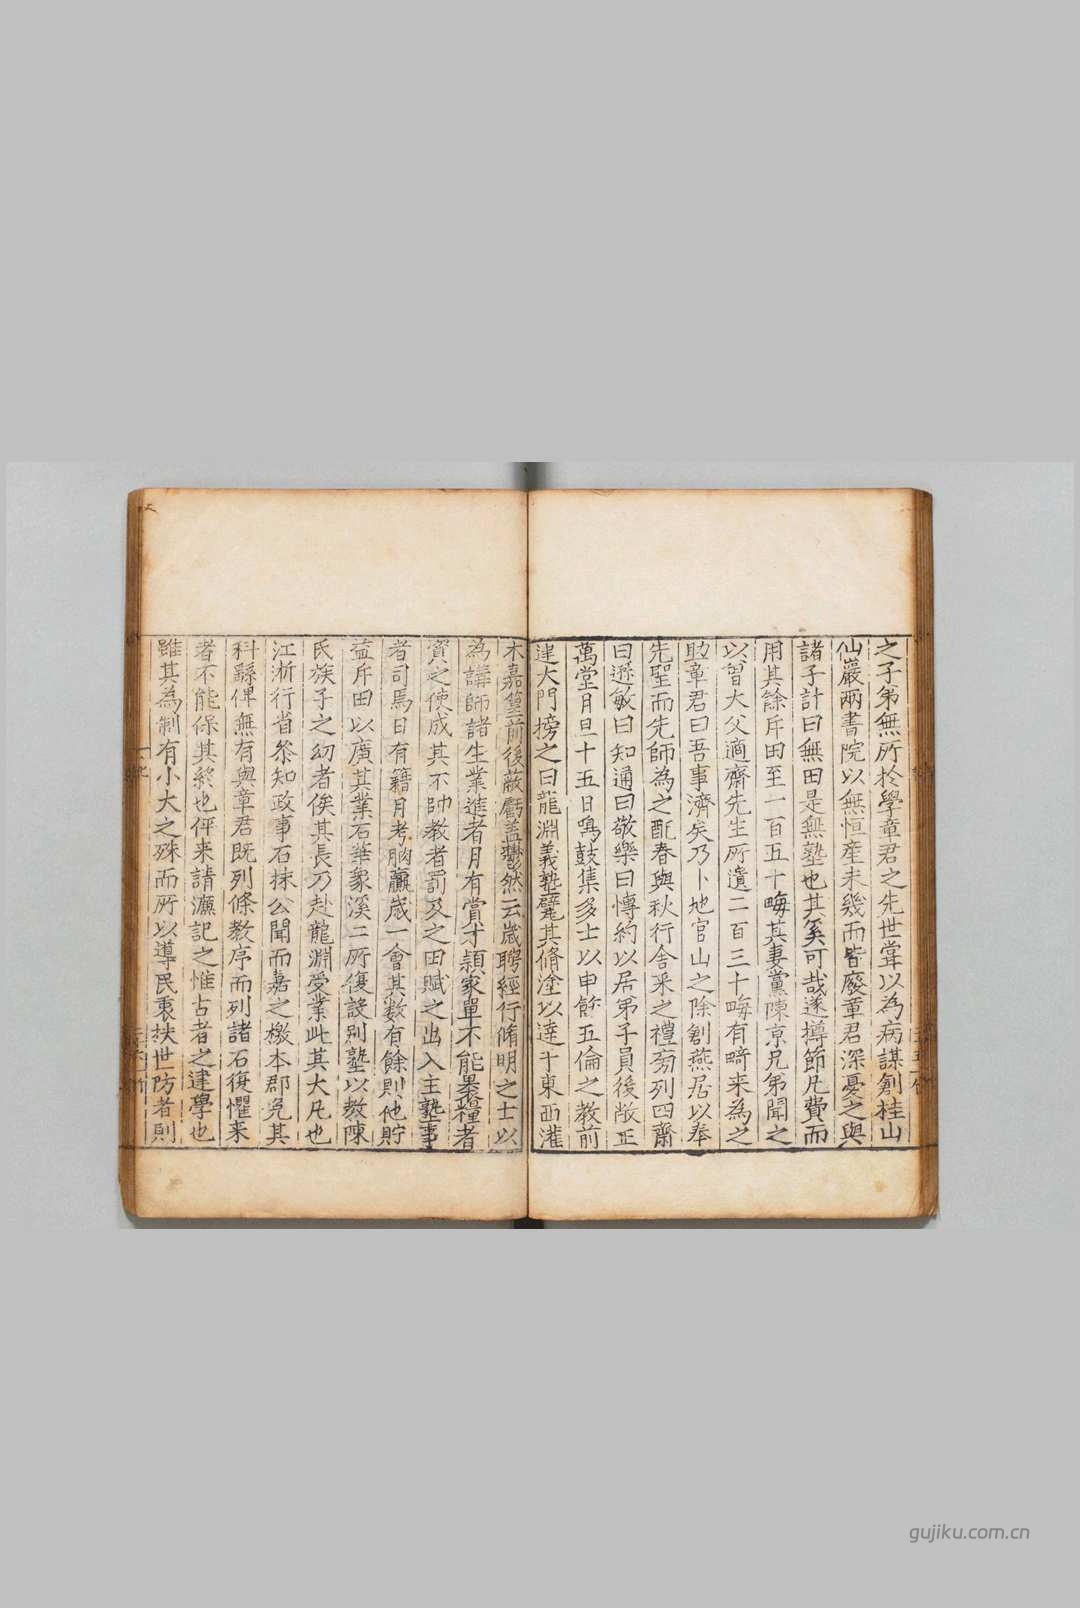 之子弟無所於學章君之先世甞以為病謀創桂山
仙巖兩書院以無恒産未幾而皆廢章君深憂之與
諸子計曰無田是無塾也其奚可哉遂撙節凡費而
用其餘斥田至一百五十畮其妻黨陳京兄弟聞之
以曾大父適齋先生所遺二百三十畮有畸来為之
助章君曰吾事濟矣乃卜地官山之陰創燕居以奉
先聖而先師為之配春與秋行舎采之禮旁列四齋
曰遜敏曰知通曰敬樂曰博約以居弟子員後敞正
萬堂月旦十五日鳴鼓集多士以申飭五倫之教前
建大門榜之曰龍淵義塾甓其脩塗以達于東西灌
木嘉篁前後蔽虧盖鬱然云歲聘經行脩明之士以
為講師諸生業進者月有賞才頴家單不能裹糧者
資之使成其不帥教者罰及之田賦之出入主塾事
者司焉日有籍月考朒贏歲一會其數有餘則他貯
益斥田以廣其業石華象溪二所復設别塾以教陳
氏族子之幼者俟其長乃赴龍淵受業此其大凡也
江浙行省叅知政事石抹公聞而嘉之檄本郡免其
科繇俾無有與章君既列條教序而列諸石復懼来
者不能保其終也伻来請濂記之惟古者之建學也
雖其為制有小大之殊而所以導民秉扶世防者則
gujiku.com.cn